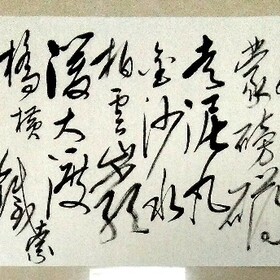 蒙磅礴
走泥丸
金沙水
拍雲崖
暖大渡
橋橫
鐵索